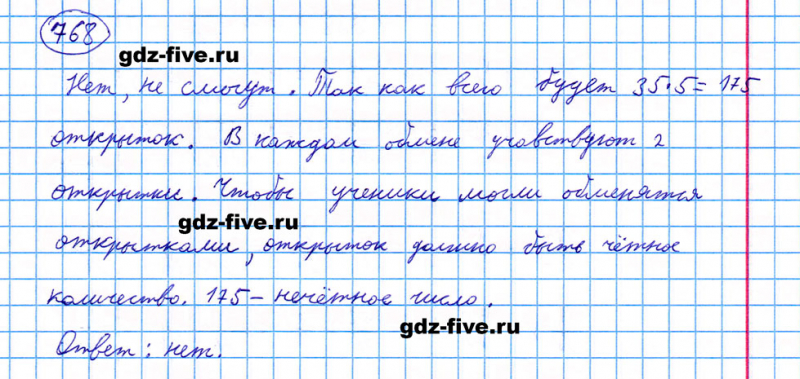 768
gdz-five.ru
Нет, не смогут. Так как всего будет 35·5=175
открыток. В каждом обмене учавствуют 2
открытки. Чтобы ученики могли обменятся
gdz-five.ru
открытками, открыток должно быть чётное
количество. 175 – нечётное число.
gdz-five.ru
Ответ: нет.